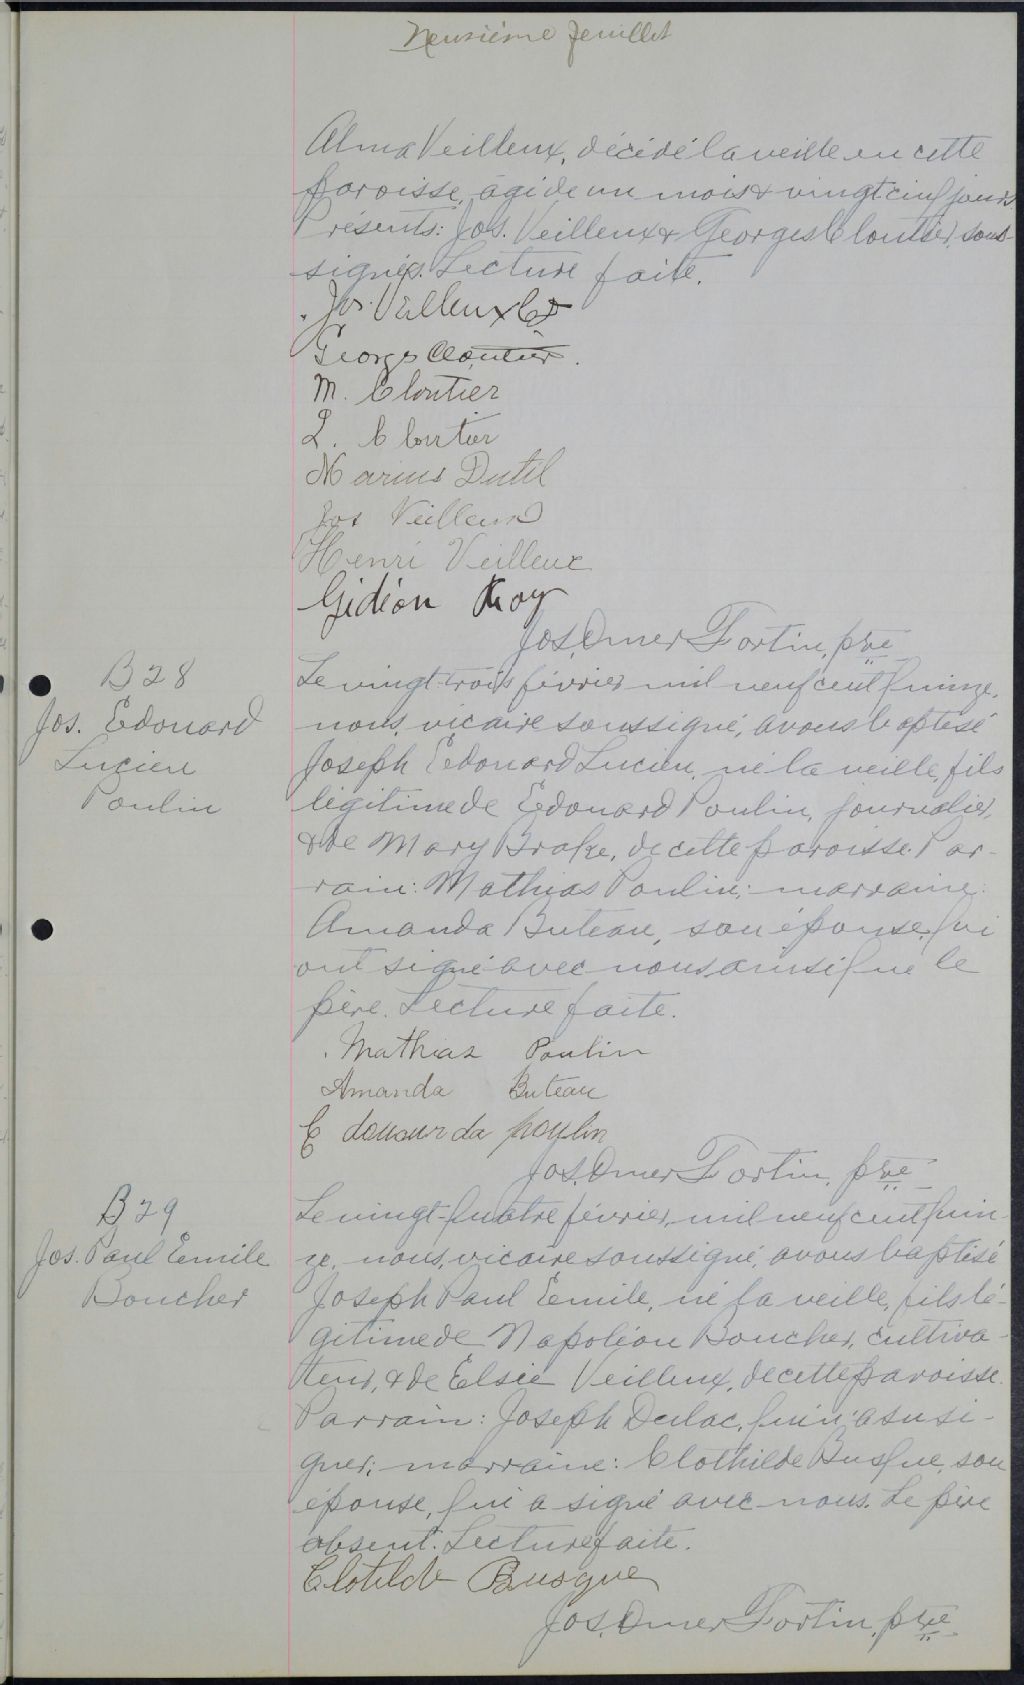 Neuvième feuillet
Alma Veilleux, décédé la veille en cette
paroisse, âgé de un mois & vingt cinq jours.
Présents: Jos. Veilleux & Georges Cloutier, sous-
signés. Lecture faite.
Jos. Veilleux
Georges Cloutier.
M. Cloutier
L. Cloutier
Marius Dutil
Jos Veilleux
Henri Veilleux
Gidéon Roy
Jos. Omer Fortin, ptre
B 28
Jos. Edouard
Lucien
Poulin
Le vingt-trois février mil neuf cent quinze,
nous, vicaire soussigné, avons baptisé
Joseph Edouard Lucien, né la veille, fils
légitime de Edouard Poulin, journalier,
& de Mary Brake, de cette paroisse. Par-
rain: Mathias Poulin; marraine:
Amanda Buteau, son épouse, qui
ont signé avec nous ainsi que le
père. Lecture faite.
Mathias Poulin
Amanda Buteau
E douaurda poulin
Jos. Omer Fortin, ptre
B 29
Jos. Paul Emile
Boucher
Le vingt-quatre février, mil neuf cent quin-
ze, nous, vicaire soussigné, avons baptisé
Joseph Paul Emile, né la veille, fils lé-
gitime de Napoléon Boucher, cultiva-
teur, & de Elsie Veilleux, de cette paroisse.
Parrain: Joseph Dulac, qui n'a su si-
gner; marraine: Clothilde Busque, son
épouse, qui a signé avec nous. Le père
absent. Lecture faite.
Clotilde Busque
Jos. Omer Fortin, ptre